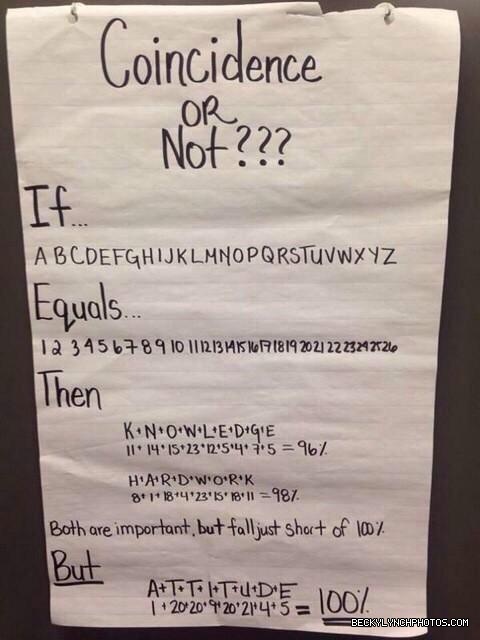 Coincidence
OR
Not???
If...
A B C D E F G H I J K L M N O P Q R S T U V W X Y Z
Equals...
1 2 3 4 5 6 7 8 9 10 11 12 13 14 15 16 17 18 19 20 21 22 23 24 25 26
Then
K+N+O+W+L+E+D+G+E
11+14+15+23+12+5+4+7+5=96%
H+A+R+D+W+O+R+K
8+1+18+4+23+15+18+11=98%
Both are important, but fall just short of 100%
But
A+T+T+I+T+U+D+E
1+20+20+9+20+21+4+5=100%
BECKYLYNCHPHOTOS.COM